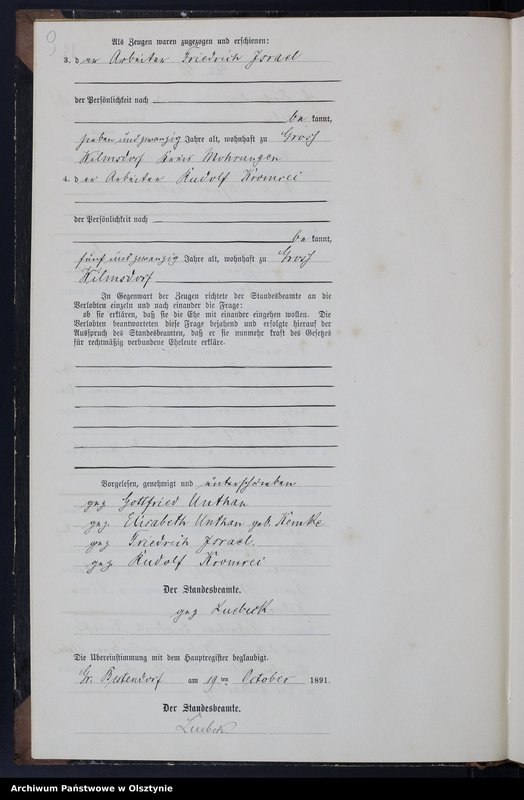 9
Als Zeugen waren zugezogen und erschienen:
3. der Arbeiter Friedrich Israel
der Persönlichkeit nach
be kannt,
sieben und zwanzig Jahre alt, wohnhaft zu Gross
Wilmsdorf Kreis Mohrungen
4. der Arbeiter Rudolf Kromrei
der Persönlichkeit nach
be kannt,
fünf und zwanzig Jahre alt, wohnhaft zu Gross
Wilmsdorf
In Gegenwart der Zeugen richtete der Standesbeamte an die
Verlobten einzeln und nach einander die Frage:
ob sie erklären, daß sie die Ehe mit einander eingehen wollen. Die
Verlobten beantworteten diese Frage bejahend und erfolgte hierauf der
Ausspruch des Standesbeamten, daß er sie nunmehr kraft des Gesetzes
für rechtmäßig verbundene Eheleute erkläre.
Vorgelesen, genehmigt und unterschrieben
gez Gottfried Unthan
gez. Elisabeth Unthan geb. Kemke
gez Friedrich Israel.
gez Rudolf Kromrei
Der Standesbeamte.
gez Luebeck.
Die Übereinstimmung mit dem Hauptregister beglaubigt.
Gr. Bestendorf am 19ten October 1891.
Der Standesbeamte.
Luebeck.
Archiwum Państwowe w Olsztynie